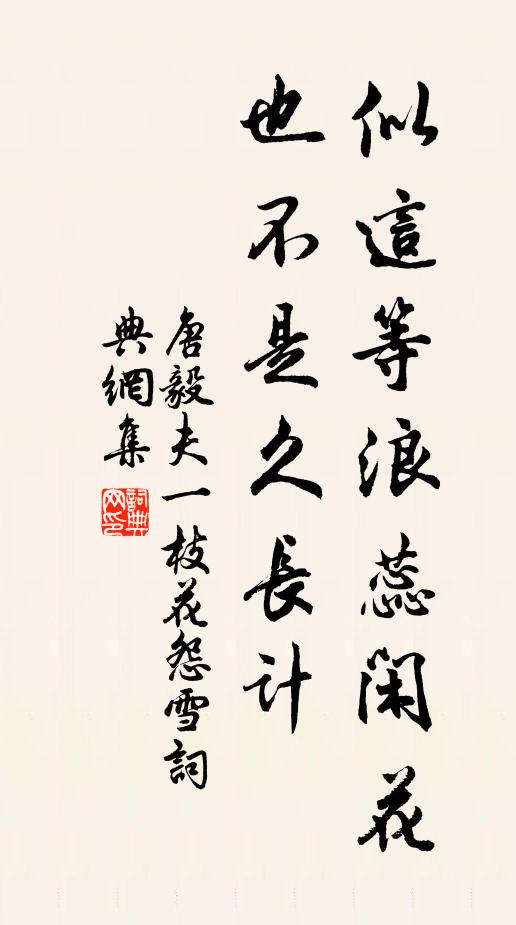 似這等浪蕊閑花
也不是久長計
唐毅夫一枝花怨雪詞
典網集
詞典
网印